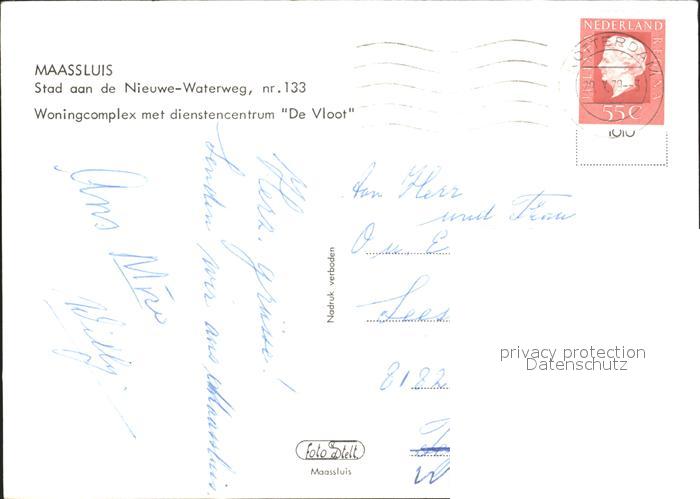 MAASSLUIS
Stad aan de Nieuwe-Waterweg, nr. 133
Woningcomplex met dienstencentrum "De Vloot"
NEDERLAND
ROTTERDAM
55 C
Herz. grüsse!
senden wir aus Maassluis.
Ans
Willy
Nadruk verboden
An Herr
und Frau
O. u. E
8182
foto Stelt
Maassluis
privacy protection
Datenschutz